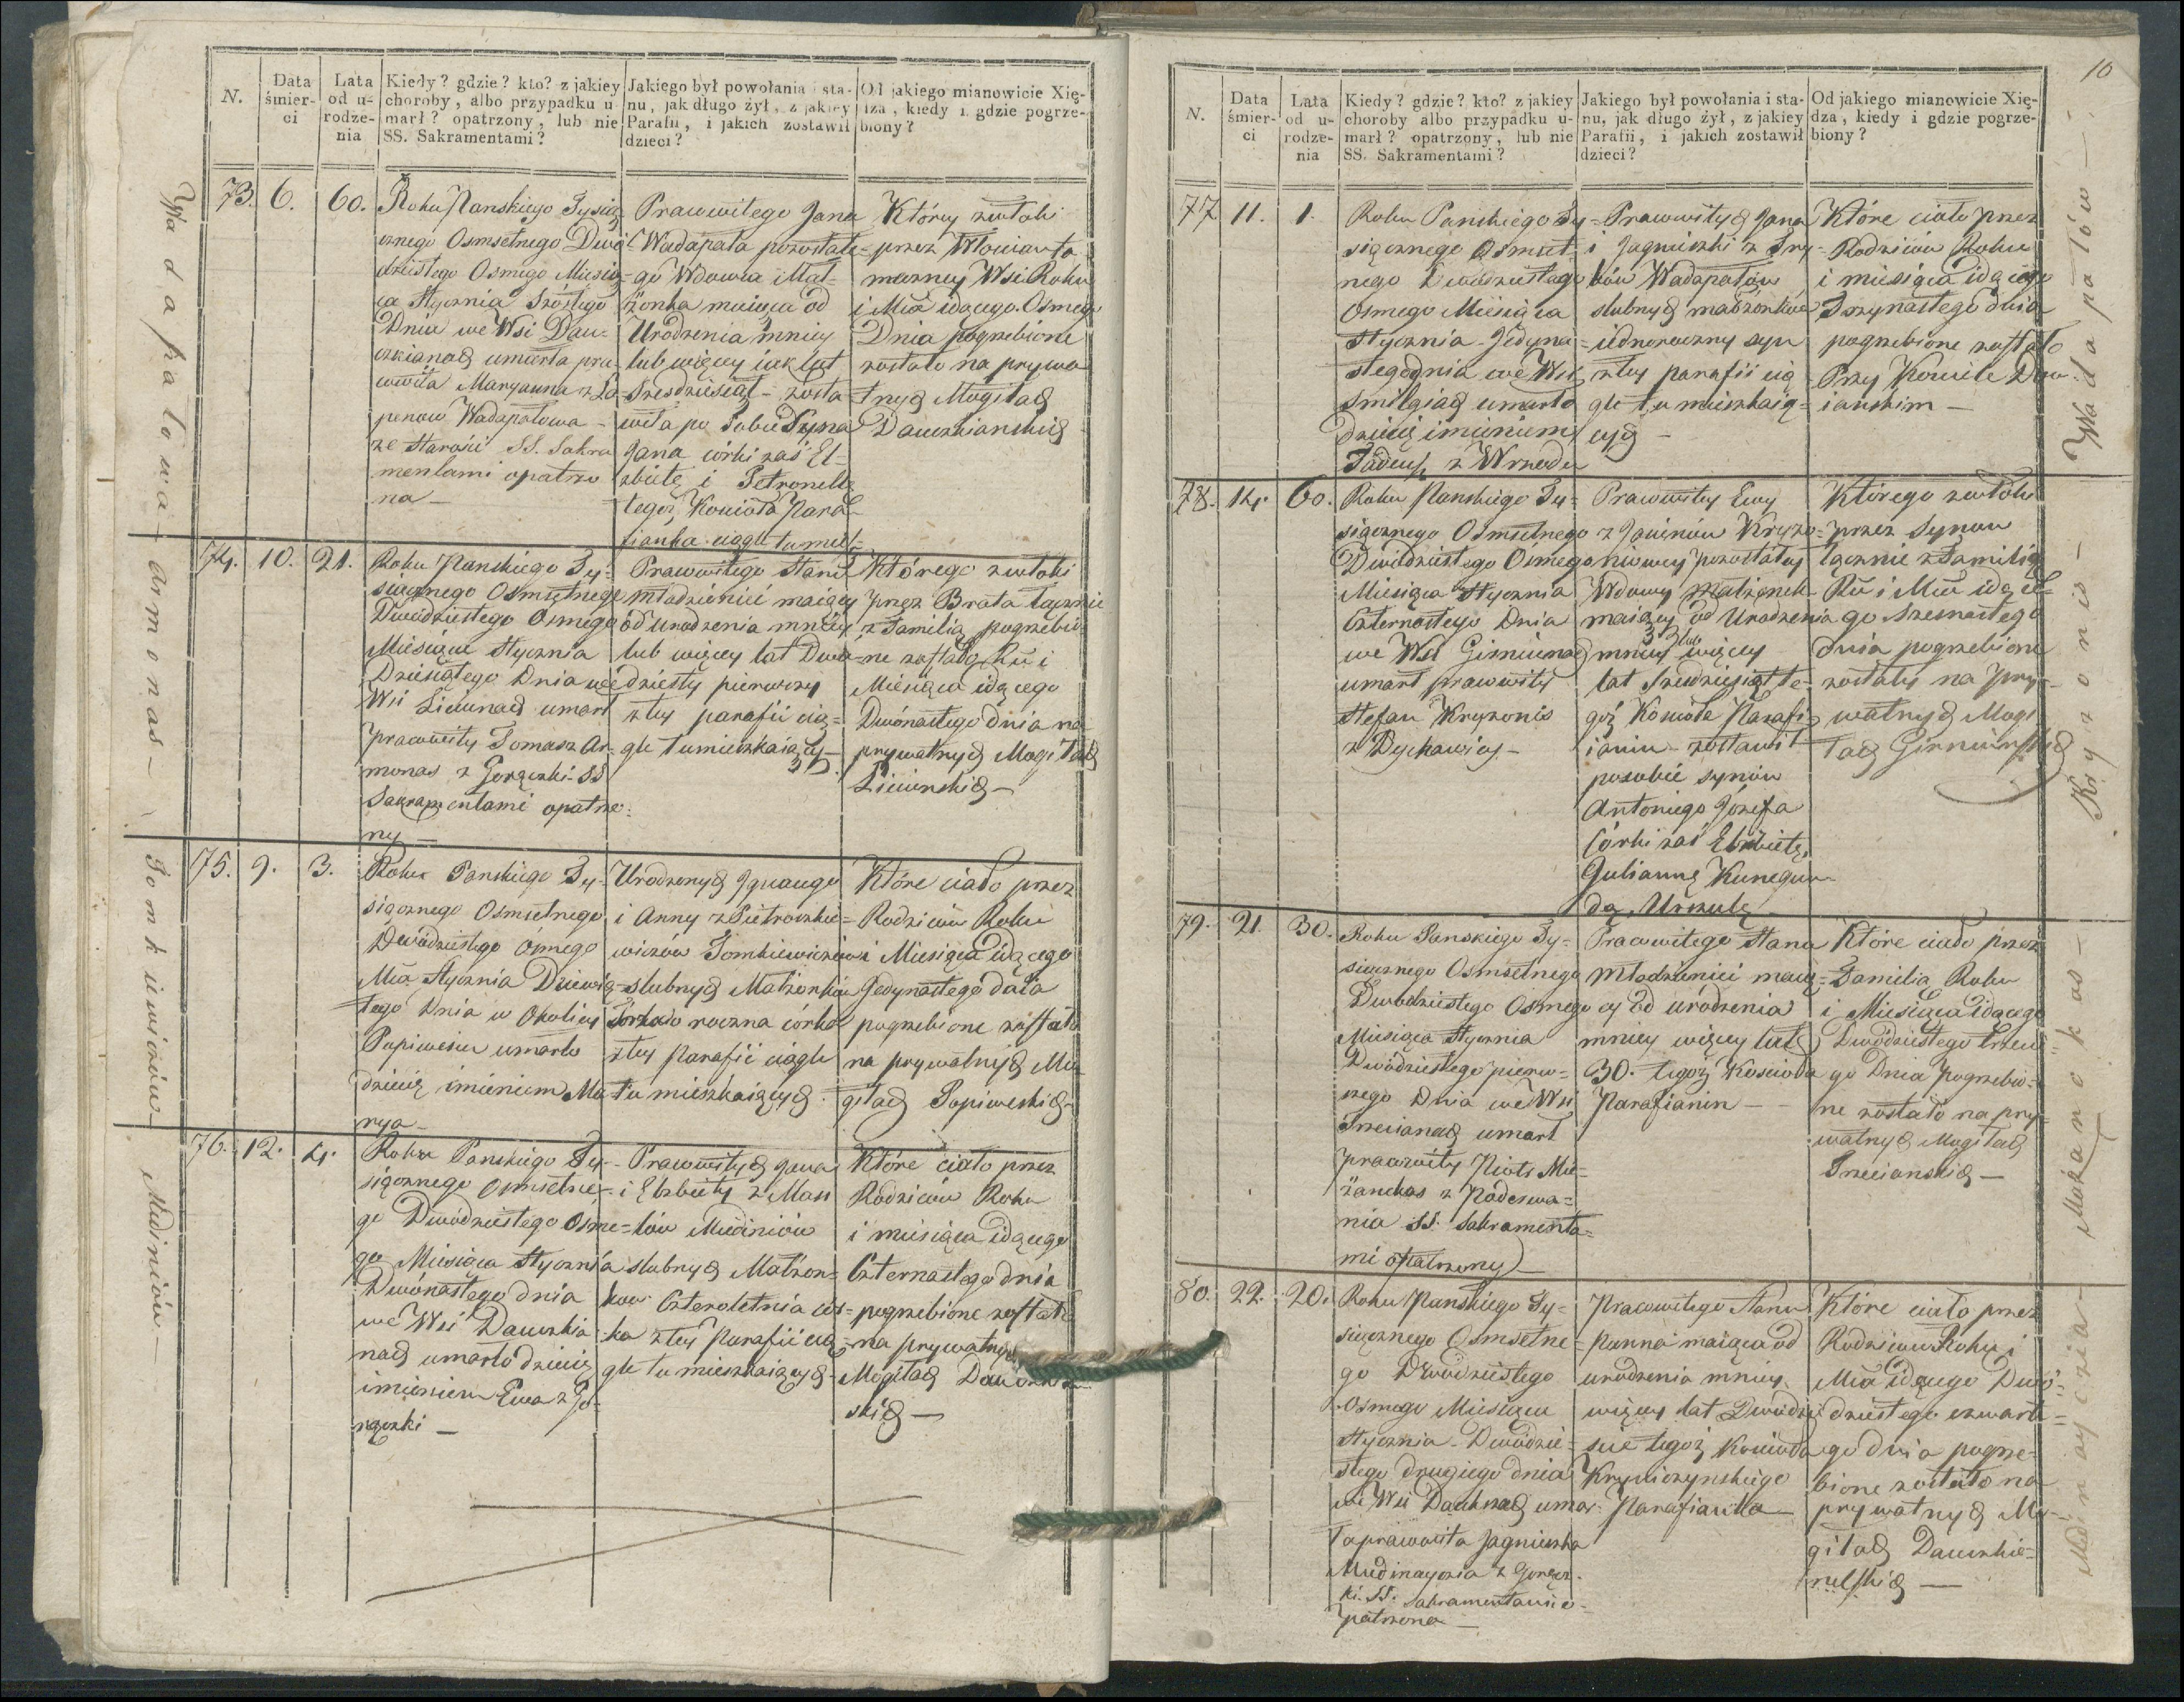 N.
Data śmier-
ci
Lata
od u-
rodze-
nia
Kiedy? gdzie? kto? z jakiey
choroby, albo przypadku u-
marł? opatrzony, lub nie
SS. Sakramentami?
Jakiego był powołania i sta-
nu, jak długo żył, z jakiey
Parafii, i jakich zostawił
dzieci?
Od jakiego mianowicie Xię-
dza, kiedy i gdzie pogrze-
biony?
Wadapałowa
73. 6. 60.
Roku Panskiego Tysią
cznego Osmsetnego Dwó
dziestego Osmego Miesią=
ca Stycznia Szóstego
Dnia we Wsi Dau=
czkianach umarła pra
cowita Maryanna z
Wadapałowa -
ze starości SS. Sakra
mentami opatrzo
na -
Pracowitego Jana
Wadapała pozostałe=
go Wdowa Mał-
żonka maiąca od
Urodzenia mniey
lub więcey iak lat
Szesdziesiąt - zosta
wiła po sobie Syna
Jana córki zaś El-
żbietę i Petronellę
tegoż Kościoła Para-
fianka ciągle tu miesz-
Który zwłoki
przez Włościan ta
meczney Wsi Roku
i Mca idącego Osmego
Dnia pogrzebione
zostało na prywa
tnych Mogiłach
Dauczkianskich
Armonas -
74. 10. 21.
Roku Panskiego Ty=
siącznego Osmsetnego
Dwódziestego Osmego
Miesiąca Stycznia
Dziesiątego Dnia we
Wsi Liciunach umarł
pracowity Tomasz Ar=
monas z Gorączki SS
Sakramentami opatrzo=
ny -
Pracowitego Stanu
młodzieniec maiący
od urodzenia mniey
lub więcey lat Dwa=
dziesty pierwszy
z tey parafii cią=
gle tu mieszkaiący -
Którego zwłoki
przez Brata łącznie
z Familią pogrzebio
ne zostało Ru i
Miesiąca idącego
Dwónastego dnia na
prywatnych Mogiłach
Liciunskich -
Tomkiewiczów -
75. 9. 3.
Roku Panskiego Ty-
siącznego Osmsetnego
Dwódziestego ósmego
Mca Stycznia Dziewią
tego Dnia w Okolicy
Papiwesiu umarło
dziecię imieniem Ma
rya -
Urodzonych Ignacego
i Anny z Pietraszkie=
wiczów Tomkiewiczów
slubnych Małżonków
Trzecho roczna córka
z tey Parafii ciągle
tu mieszkaiących.
Które ciało przez
Rodziców Roku
i Miesiąca idącego
Jedynastego dnia
pogrzebione zostało
na prywatnych Mo
giłach Papiweskich -
Miediniów -
76. 12. 4.
Roku Panskiego Ty-
siącznego Osmsetne-
go Dwódziestego Osme=
go Miesiąca Stycznia
Dwónastego dnia
we Wsi Dauczkia
nach umarło dziecię
imieniem Ewa z Go-
rączki -
Pracowitych Jana
i Elżbiety z Mas
łów Miediniów
slubnych Małżon=
ków Czteroletnia cór=
ka z tey Parafii cią
gle tu mieszkaiących -
Które ciało przez
Rodziców Roku
i miesiąca idącego
Czternastego dnia
pogrzebione zostało
na prywatnych
Mogiłach Dauczkian
skich -
10
N.
Data śmier-
ci
Lata
od u-
rodze-
nia
Kiedy? gdzie? kto? z jakiey
choroby albo przypadku u-
marł? opatrzony, lub nie
SS. Sakramentami?
Jakiego był powołania i sta-
nu, jak długo żył, z jakiey
Parafii, i jakich zostawił
dzieci?
Od jakiego mianowicie Xię-
dza, kiedy i gdzie pogrze-
biony?
Wadapałów -
77 11. 1.
Roku Panskiego Ty=
siącznego Osmset=
nego Dwódziestego
Osmego Miesiąca
Stycznia Jedyna=
stego dnia we Wsi
Smilgiach umarło
dziecię imieniem
Tadeusz z Wrzodu
Pracowitych Jana
i Jagnieszki z Try=
bów Wadapałów
slubnych małżonków
iednoroczny syn
z tey parafii cią
gle tu mieszkaią=
cych -
Które ciało przez
Rodziców Roku
i miesiąca idącego
Trzynastego dnia
pogrzebione zostało
Przy Kosciele Daw
ianskim -
Kryzonis -
78. 14. 60.
Roku Panskiego Ty=
siącznego Osmsetnego
Dwódziestego Osmego
Miesiąca Stycznia
Czternastego Dnia
we Wsi Girniunach
umarł pracowity
Stefan Kryzonis
z Dychawicy -
Pracowitey Ewy
z Kryzo=
niowey pozostałey
Wdowy małżonek
maiący od Urodzenia
mniey lub więcey
lat Szesdziesiąt te=
goż Koscioła Parafi
ianin - zostawił
po sobie synów
Antoniego Józefa
Córki zaś Elżbietę,
Juliannę Kunegun
dą, Urszulę
Którego zwłoki
przez Synow
łącznie z Familią
Ru i Mca idące=
go szesnastego
dnia pogrzebione
zostały na pry=
watnych Mogi
łach Girniunskich
Mażanokas -
79. 21. 30.
Roku Panskiego Ty=
siącznego Osmsetnego
Dwódziestego Osmego
Miesiąca Stycznia
Dwódziestego pierw=
szego Dnia we Wsi
Trecianach umarł
pracowity Piotr Ma=
żankas z Poderwa=
nia SS. Sakramenta=
mi opatrzony -
Pracowitego Stanu
Młodzieniec maią=
cy od urodzenia
mniey więcey lat
30. tegoż Kościoła
Parafianin -
Które ciało przez
Familią Roku
i Miesiąca idącego
Dwódziestego trzecie
go Dnia pogrzebio=
ne zostało na pry=
watnych Mogiłach
Trecianskich -
Miednaycia -
80. 22. 20.
Roku Panskiego Ty=
siącznego Osmsetne=
go Dwódziestego
Osmego Miesiąca
Stycznia - Dwódzie=
stego drugiego dnia
we Wsi umar=
ła pracowita Jagnieszka
Miedinaycia z Gorącz-
ki SS. Sakramentami o-
patrzona -
Pracowitego Stanu
Panna maiąca od
urodzenia mniey
więcey lat Dwódzie
scie tegoż Kościoła
Kryniczynskiego
Parafianka -
Które ciało przez
Rodziców Roku i
Mca idącego Dwó=
dziestego czwarte=
go dnia pogrze=
bione zostało na
prywatnych Mo=
giłach
-